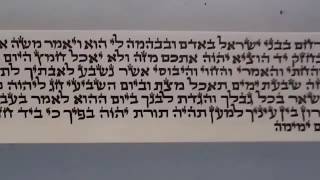 רחם בבני ישראל באדם ובבהמה לי הוא ויאמר משה א
בחזק יד הוציא יהוה אתכם מזה ולא יאכל חמץ היום
והחתי והאמרי והחוי והיבוסי אשר נשבע לאבתיך לת
ה שבעת ימים תאכל מצת וביום השביעי חג ליהוה
שאר בכל גבלך והגדת לבנך ביום ההוא לאמר בעב
רון בין עיניך למען תהיה תורת יהוה בפיך כי ביד ח
ימימה